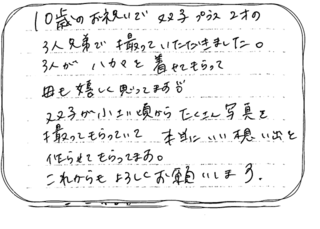 10歳のお祝いで 双子プラス 2才の
3人兄弟で 撮っていただきました。
3人が ハカマと 着せてもらって
母も嬉しく思ってます
双子が小さい頃から たくさん写真を
撮ってもらっていて 本当に いい想い出と
作らせてもらってます。
これからも よろしくお願いします。